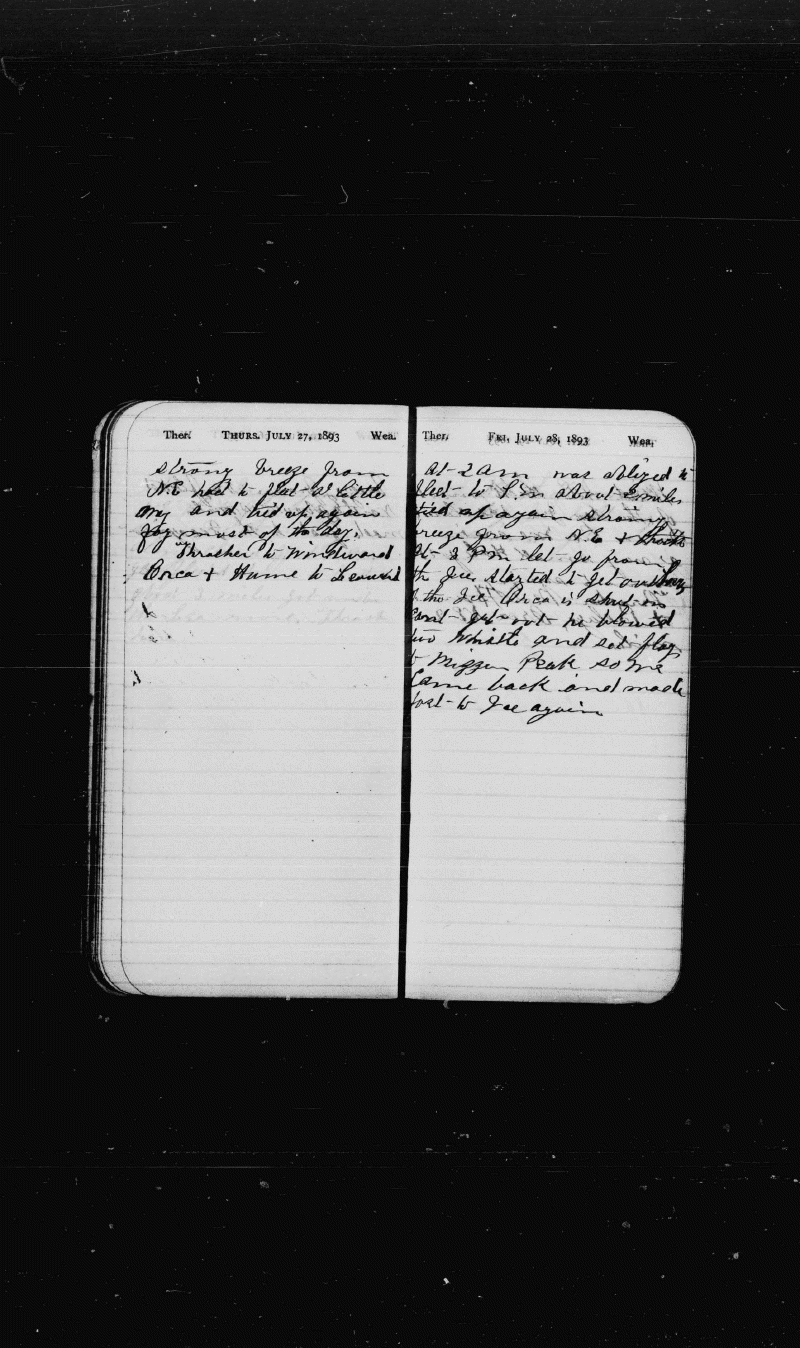 Ther. THURS. JULY 27, 1893 Wea.
Strong breeze from
N.E had to fleet a little
and tied up again
fog most of the day.
Thrasher to Windward
Orca + Hume to Leeward
Ther. FRI. JULY 28, 1893 Wea.
At 2 am was oblyed to
fleet to S.W about 2 miles
tied up again strong
breeze from N.E +
At 2 PM let go from
the Ice, started to get out
of the Ice Orca is shut in
cant get out he blowed
two whistle and set flag
to Mizzen Peak so we
came back and made
fast to Ice again